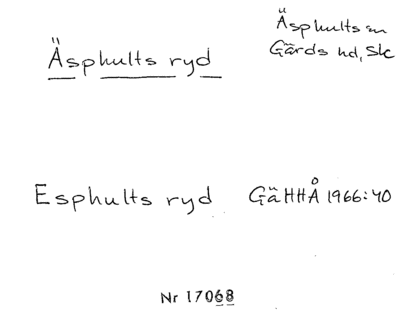 Äsphults ryd
Äsphults sn
Gärds hd, Sk
Esphults ryd GäHHÅ 1966:40
Nr 17068